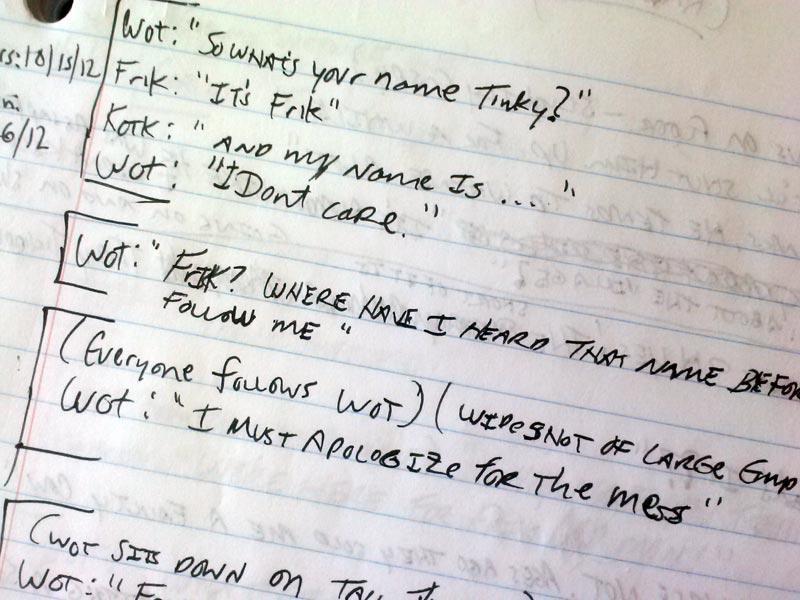 Wot: "So what's your name Tinky?"
rs: 10/15/12
Frik: "It's Frik"
n:
6/12
Kotk: "And my name is ... "
Wot: "I Dont care."
Wot: "Frik? Where have I heard that name befor
Follow me "
(Everyone follows Wot) (Wideshot of large Emp
Wot: "I must apologize for the mess"
(Wot sits down on
Wot: "